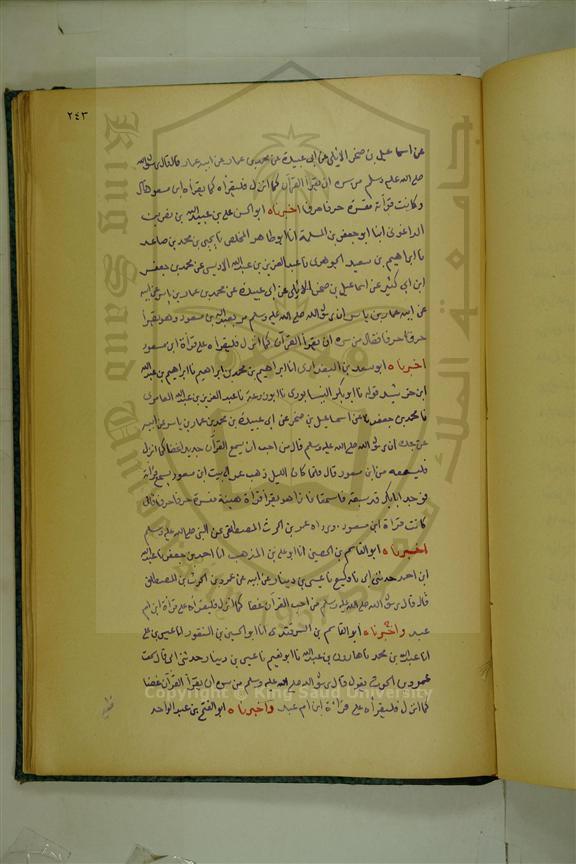 ٢٤٣
عن اسماعيل بن صخر الايلى عن ابى عبيدة عن محمد بن عمار عن ابيه عمار قال قال رسول الله
صلى الله عليه وسلم من سره ان يقرأ القرآن كما انزل فليقرأه كما يقرأه ابن مسعود قال
وكانت قرأة مفسرة حرفا حرفا اخبرناه ابو الحسن على بن عبيد الله بن نصر بن
الزاغونى ابنا ابو جعفر بن المسلمة انا ابو طاهر المخلص نا يحيى بن محمد بن صاعد
نا ابراهيم بن سعيد الجوهرى نا عبد العزيز بن عبد الله الاويسى عن محمد بن جعفر
ابن ابى كثير عن اسماعيل بن صخر الايلى عن ابى عبيدة عن محمد بن عمار بن ياسر عن ابيه
عن ابيه عمار بن ياسر ان رسول الله صلى الله عليه وسلم مر بعبد الله بن مسعود وهو يقرأ
حرفا حرفا فقال من سره ان يقرأ القرآن كما انزل فليقرأه على قرأة ابن مسعود
اخبرناه ابو سعد بن البغدادى انا ابراهيم بن محمد بن ابراهيم نا ابراهيم بن عبد الله
ابن خرشيد قوله نا ابو بكر النيسابورى نا ابو زرعة نا عبد العزيز بن عبد الله العامرى
نا محمد بن جعفر نا عن اسماعيل بن صخر عن ابى عبيدة بن محمد بن عمار بن ياسر عن ابيه
عن جده ان رسول الله صلى الله عليه وسلم قال من احب ان يسمع القرآن جديدا غضا كما انزل
فليسمعه من ابن مسعود قال فلما كان الليل ذهب عمر الى بيت ابن مسعود يسمع قراته
فوجد ابا بكر قد سبقه فاستمعا فاذا هو يقرأ قرأة هينة مفسرة حرفا حرفا قال
كانت قراة ابن مسعود. ورواه عمرو بن الحرث المصطلقى عن النبى صلى الله عليه وسلم
اخبرناه ابو القاسم بن الحصين انا ابو على بن المذهب انا احمد بن جعفر نا عبد الله
ابن احمد حدثنى ابى نا وكيع نا عيسى بن دينار عن ابيه عن عمرو بن الحرث بن المصطلق
قال قال رسول الله صلى الله عليه وسلم من احب القرآن غضا كما انزل فليقرأه على قرأة ابن ام
عبد واخبرناه ابو القاسم بن السمرقندى انا ابو الحسين بن النقور انا عيسى بن على
انا عبد الله بن محمد نا هارون بن عبد الله نا ابو نعيم نا عيسى بن دينار حدثنى ابى قال سمعت
عمرو بن الحرث يقول قال رسول الله صلى الله عليه وسلم من سره ان يقرأ القرآن غضا
كما انزل فليقرأه على قراءة ابن ام عبد واخبرناه ابو الفتح بن عبد الواحد
King Saud University
جامعة الملك
1957
Copyright © King Saud University